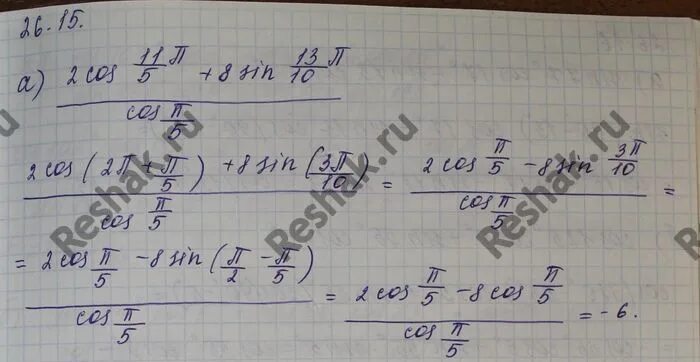 26.15.
а) (2 cos 11/5 π + 8 sin 13/10 π) / (cos π/5)
(2 cos (2π + π/5) + 8 sin (3π/10)) / (cos π/5) = (2 cos π/5 - 8 sin 3π/10) / (cos π/5) =
= (2 cos π/5 - 8 sin (π/2 - π/5)) / (cos π/5) = (2 cos π/5 - 8 cos π/5) / (cos π/5) = -6.
Reshak.ru
Reshak.ru
Reshak.ru